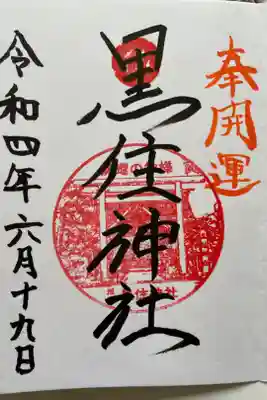 奉開運
黒住神社
令和四年六月十九日